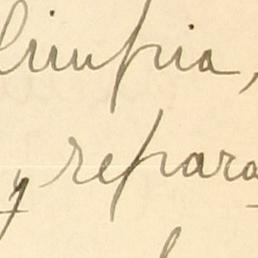 limpia,
y repara